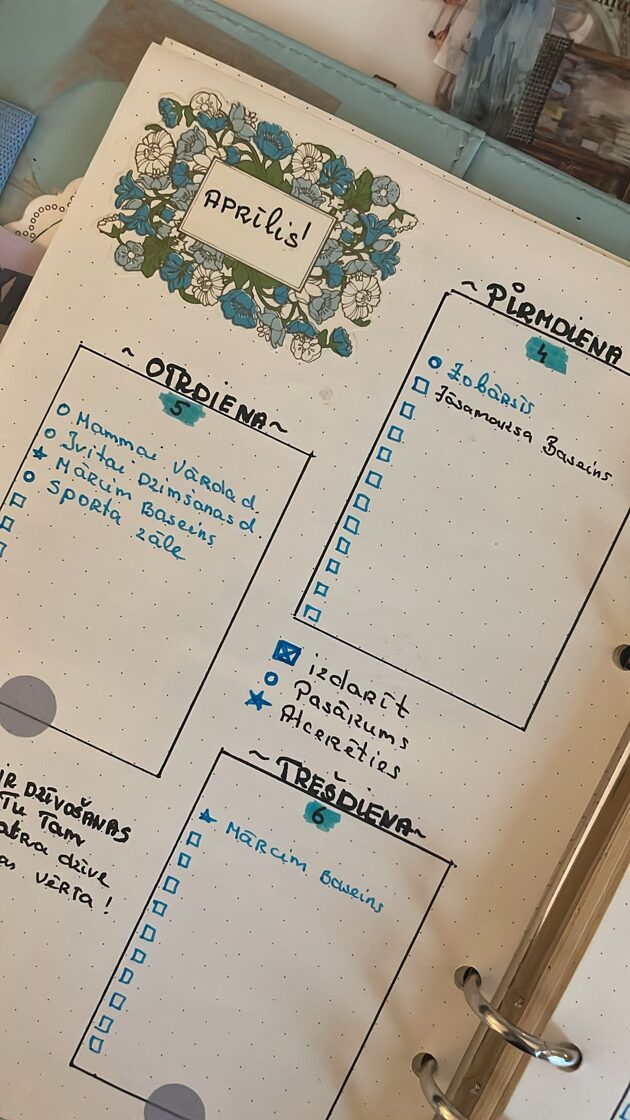 Aprīlis!
~ PIRMDIENA
4
Zobārsts
Jāsamaksa Baseins
~ OTRDIENA ~
5
Mammai Vārda d.
Ivitai Dzimšanas d.
Mārcim Baseins
Sporta zāle
izdarīt
Pasākums
Atcerēties
~ TREŠDIENA ~
6
Mārcim Baseins
IR DZĪVOŠANAS
Tu Tam
katra dzīve
vērta!